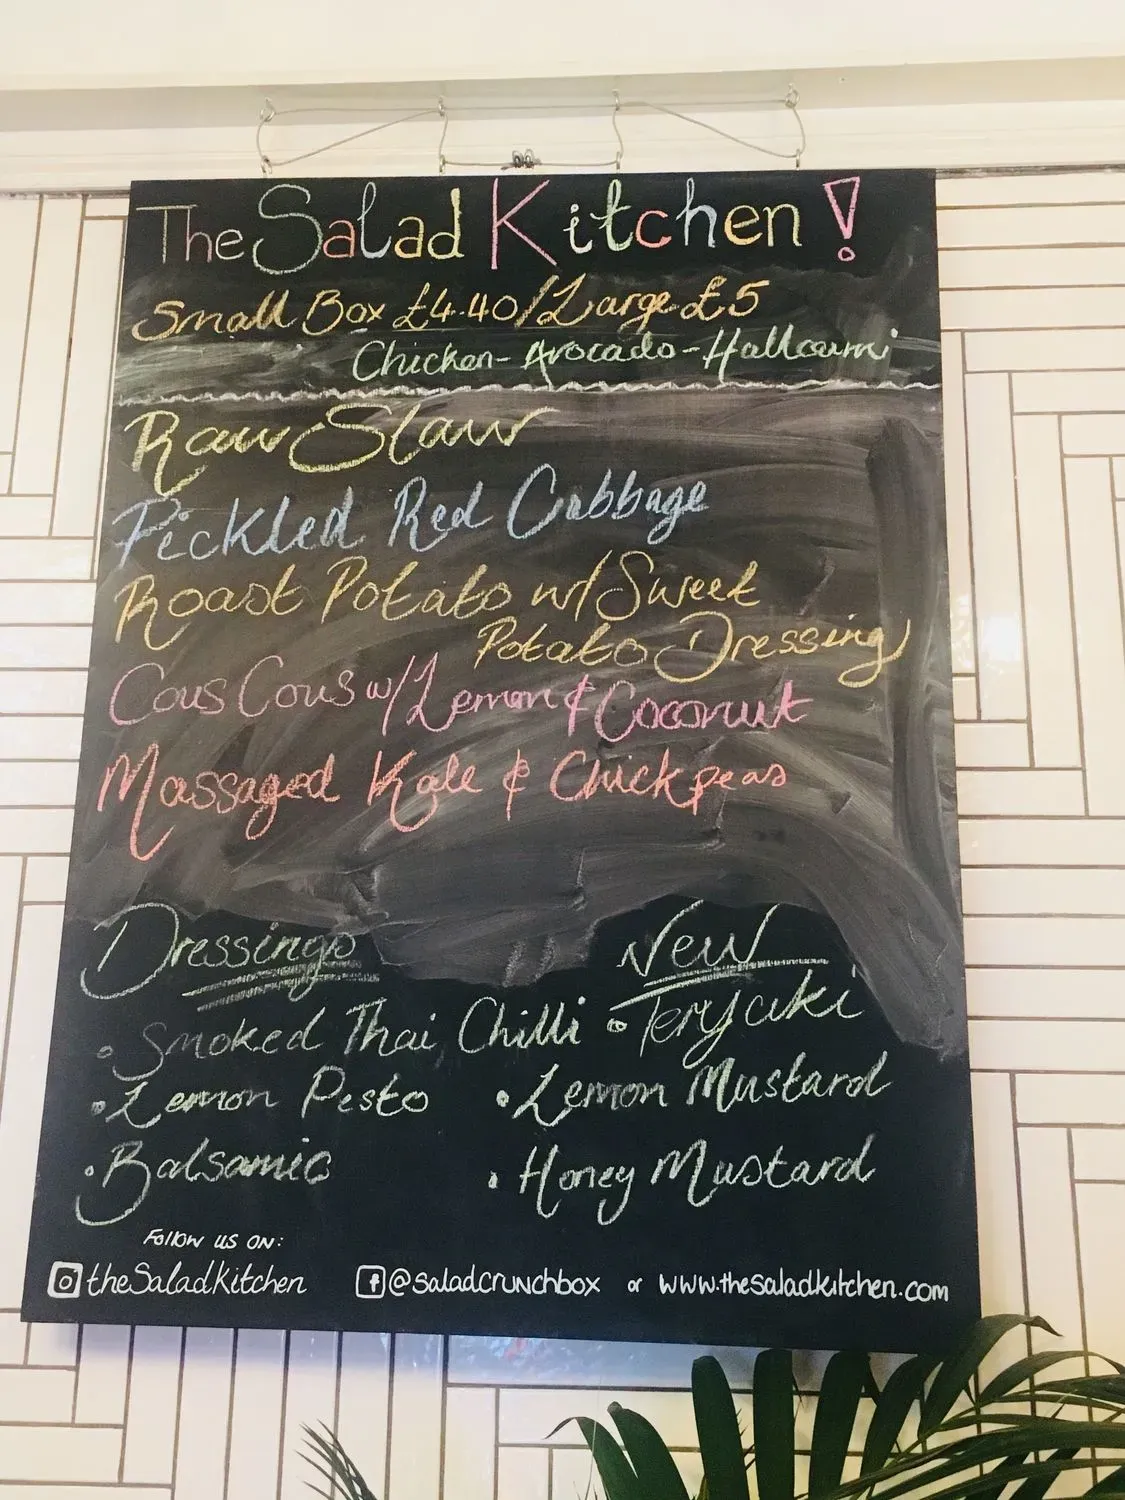 The Salad Kitchen!
Small Box £4.40/Large £5
Chicken - Avocado - Halloumi
Raw Slaw
Pickled Red Cabbage
Roast Potato w/ Sweet
Potato Dressing
Cous Cous w/ Lemon & Coconut
Massaged Kale & Chickpeas
Dressings
New
• Smoked Thai Chilli • Teryaki
• Lemon Pesto • Lemon Mustard
• Balsamic • Honey Mustard
Follow us on:
theSaladKitchen @saladcrunchbox or www.thesaladkitchen.com